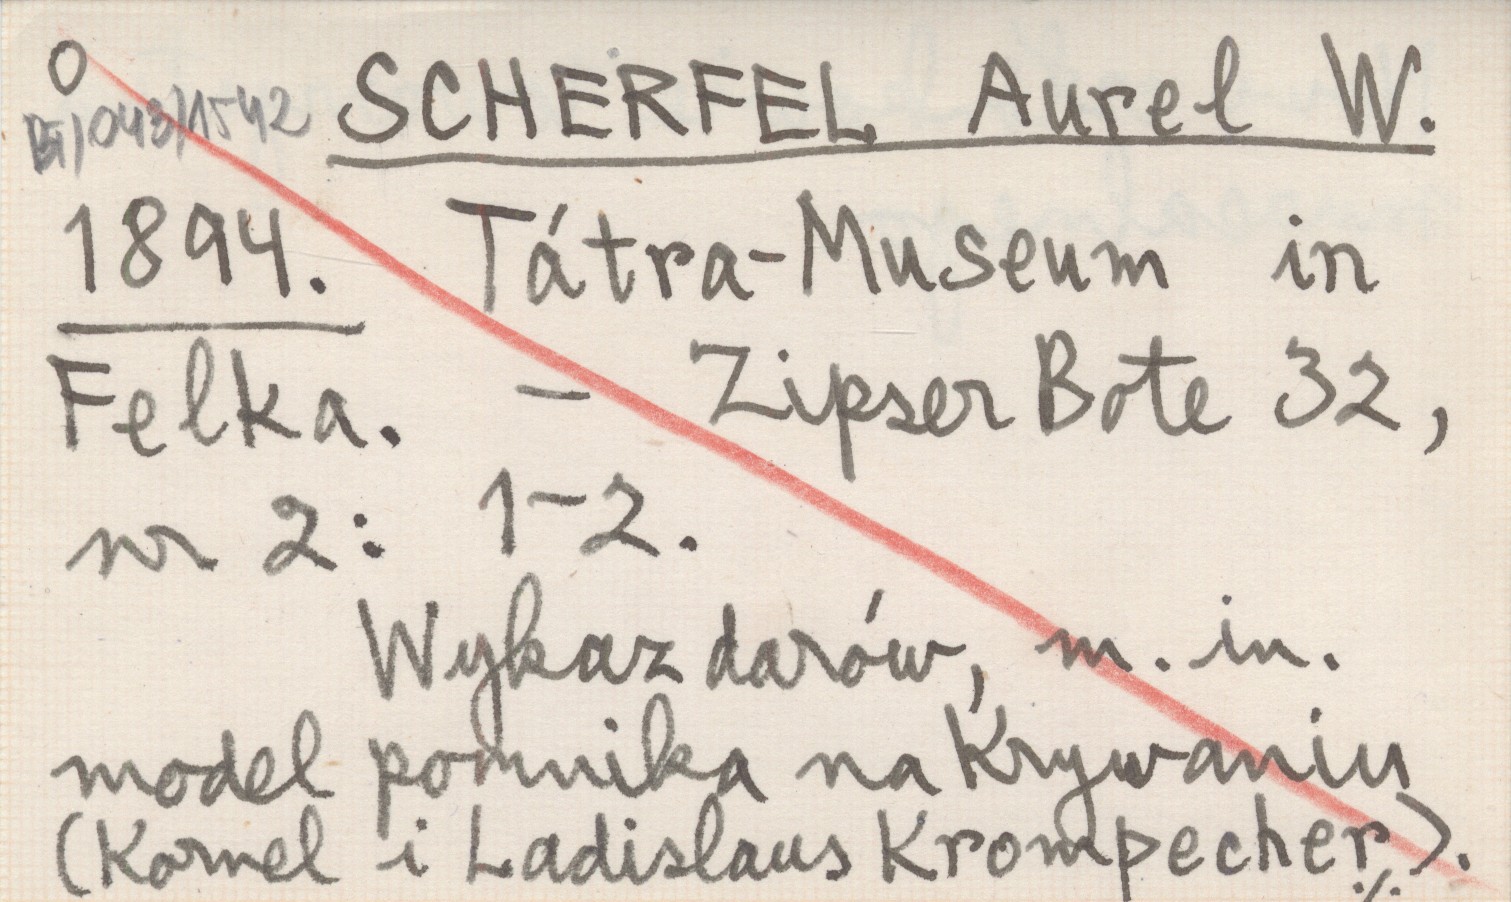 O
/043/1542 SCHERFEL Aurel W.
1894. Tátra-Museum in
Felka. – Zipser Bote 32,
nr 2: 1-2.
Wykaz darów, m. in.
model pomnika na Krywaniu
(Kornel i Ladislaus Krompecher).
./.